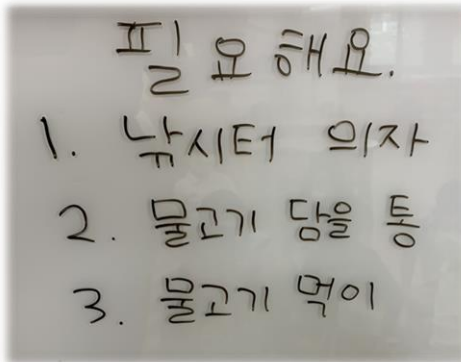 필요해요.
1. 낚시터 의자
2. 물고기 담을 통
3. 물고기 먹이